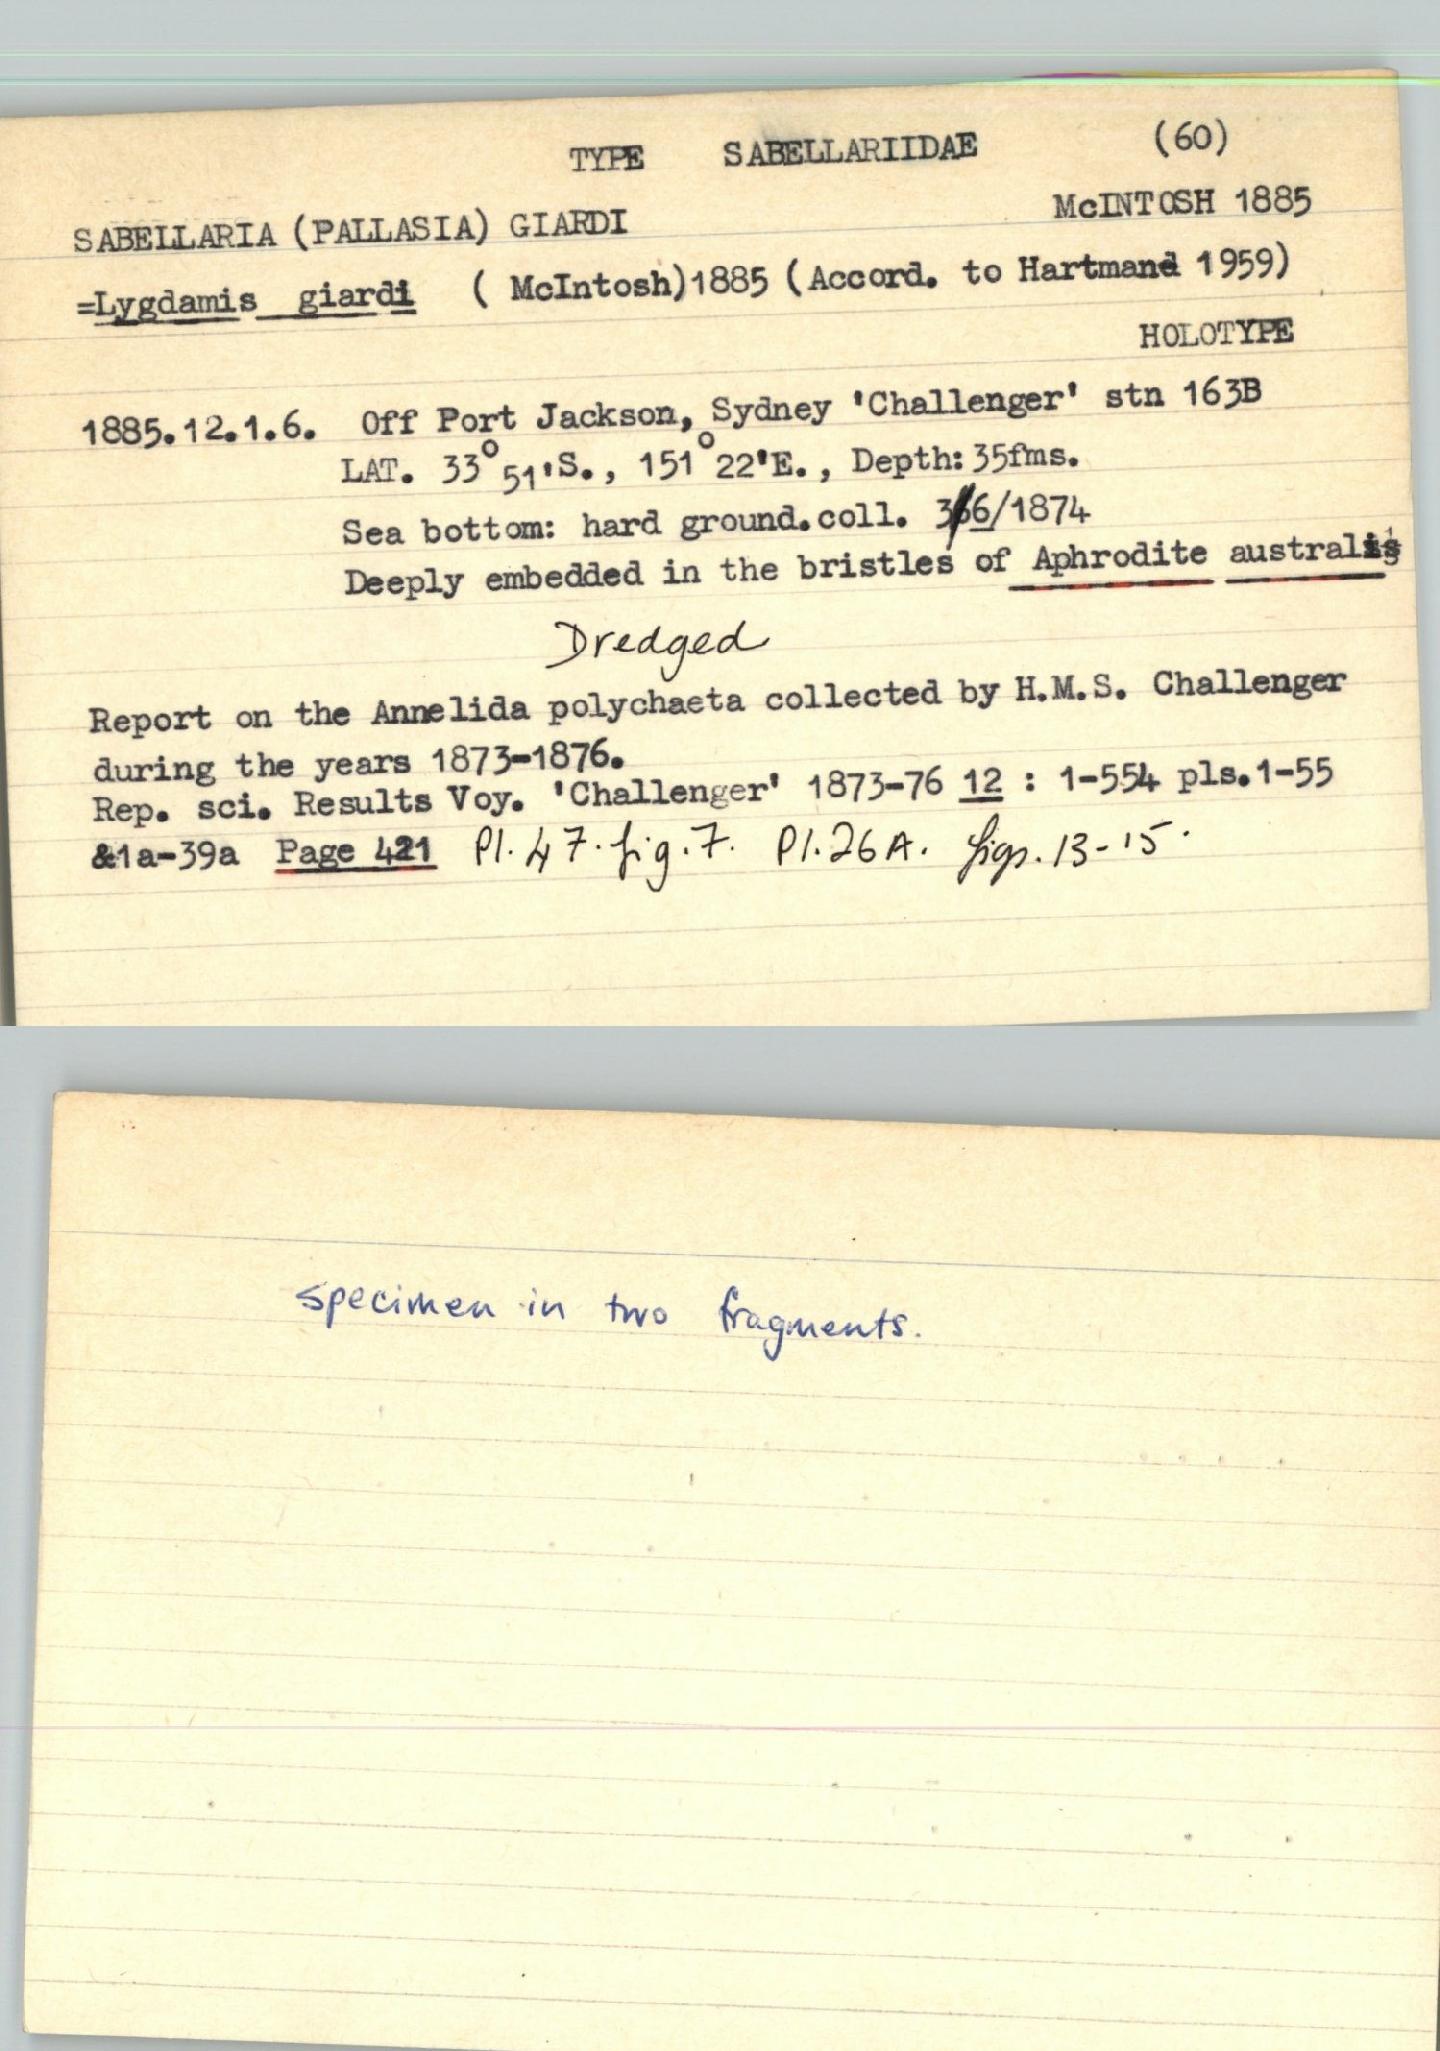 TYPE SABELLARIIDAE (60)
SABELLARIA (PALLASIA) GIARDI McINTOSH 1885
=Lygdamis giardi ( McIntosh)1885 (Accord. to Hartmand 1959)
HOLOTYPE
1885.12.1.6. Off Port Jackson, Sydney 'Challenger' stn 163B
LAT. 33°51'S., 151°22'E., Depth: 35fms.
Sea bottom: hard ground.coll. 3/6/1874
Deeply embedded in the bristles of Aphrodite australis
Dredged
Report on the Annelida polychaeta collected by H.M.S. Challenger
during the years 1873-1876.
Rep. sci. Results Voy. 'Challenger' 1873-76 12 : 1-554 pls.1-55
&1a-39a Page 421 Pl. 47. fig. 7. Pl. 26A. figs. 13-15.
specimen in two fragments.